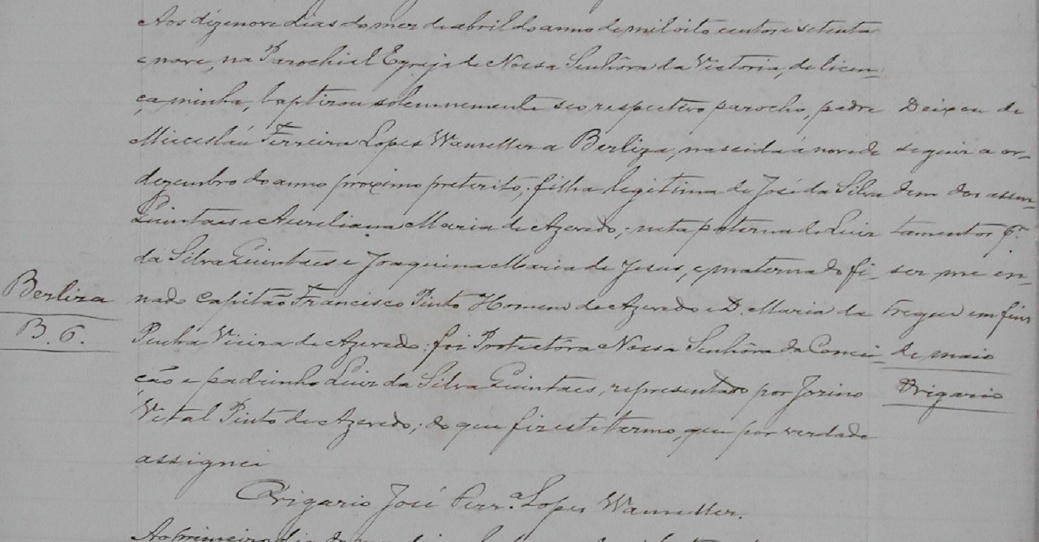 Aos dezenove dias do mez de abril do anno de mil oito centos e setenta
e nove, na Parochial Egreja de Nossa Senhôra da Victoria, de licen-
ça minha, baptizou solemnemente seo respectivo parocho, padre
Miecesláu Ferreira Lopes Wanmeller a Berliza, nascida á nove de
dezembro do anno proximo preterito, filha legitima de José da Silva
Quintaes e Aureliana Maria de Azevedo, neta paterna de Luiz
da Silva Quintaes e Joaquina Maria de Jesus, e materna do fi-
nado Capitão Francisco Pinto Homem de Azevedo e D. Maria da
Penha Vieira de Azevedo: foi Protectôra Nossa Senhôra da Concei-
ção e padrinho Luiz da Silva Quintaes, representado por
Vital Pinto de Azevedo; do que fiz este termo, que por verdade
assignei
O vigario José Ferr.ª Lopes Wanmeller.
Berliza
B. 6.
Deixou de
seguir a or-
dem dos assen-
tamentos p.r
ser me en-
tregue em fins
de maio
O vigario
Ao primeiro dia do